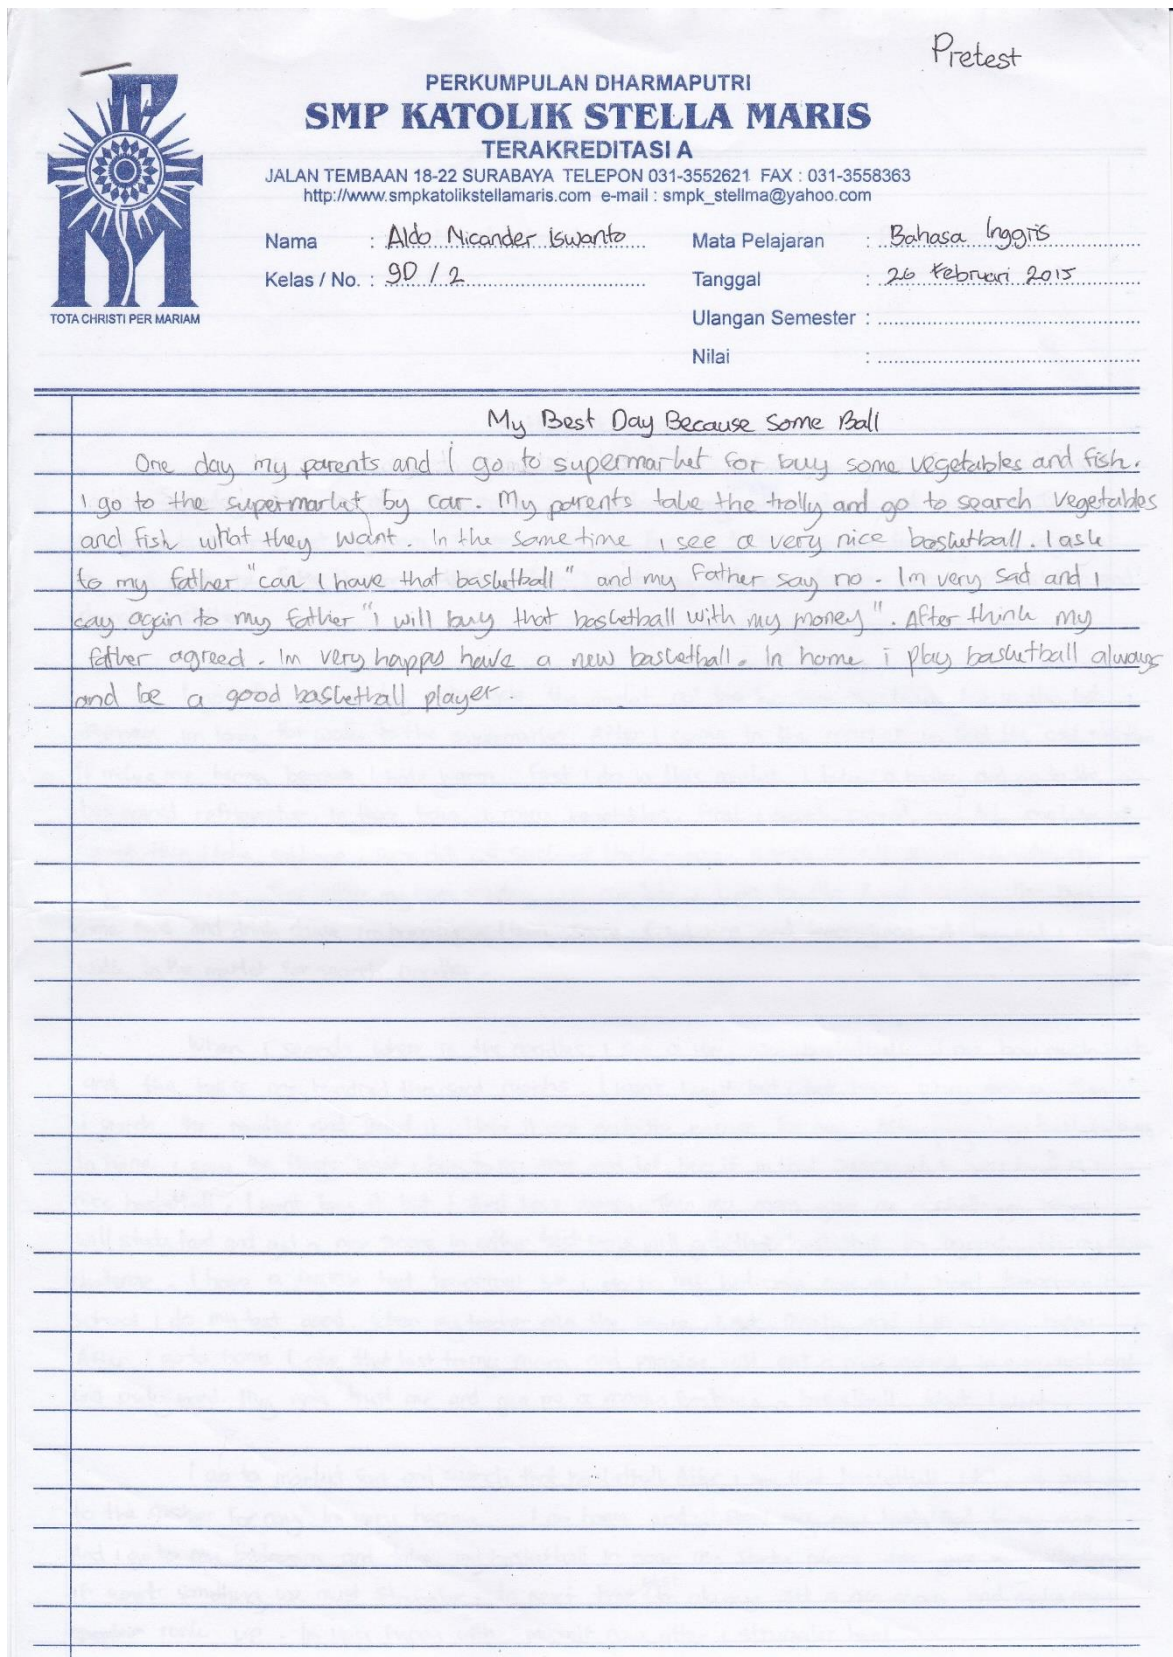 Pretest
PERKUMPULAN DHARMAPUTRI
SMP KATOLIK STELLA MARIS
TERAKREDITASI A
JALAN TEMBAAN 18-22 SURABAYA TELEPON 031-3552621 FAX : 031-3558363
http://www.smpkatolikstellamaris.com e-mail : smpk_stellma@yahoo.com
Nama : Aldo Nicander Iswanto
Kelas / No. : 9D / 2
Mata Pelajaran : Bahasa Inggris
Tanggal : 26 Februari 2015
Ulangan Semester :
Nilai :
TOTA CHRISTI PER MARIAM
My Best Day Because Some Ball
One day my parents and I go to supermarket for buy some vegetables and fish.
I go to the supermarket by car. My parents take the trolly and go to search vegetables
and fish what they want. In the same time i see a very nice basketball. I ask
to my father "can I have that basketball" and my father say no. Im very sad and I
say again to my father "i will buy that basketball with my money". After think my
father agreed. Im very happy have a new basketball. In home i play basketball always
and be a good basketball player.